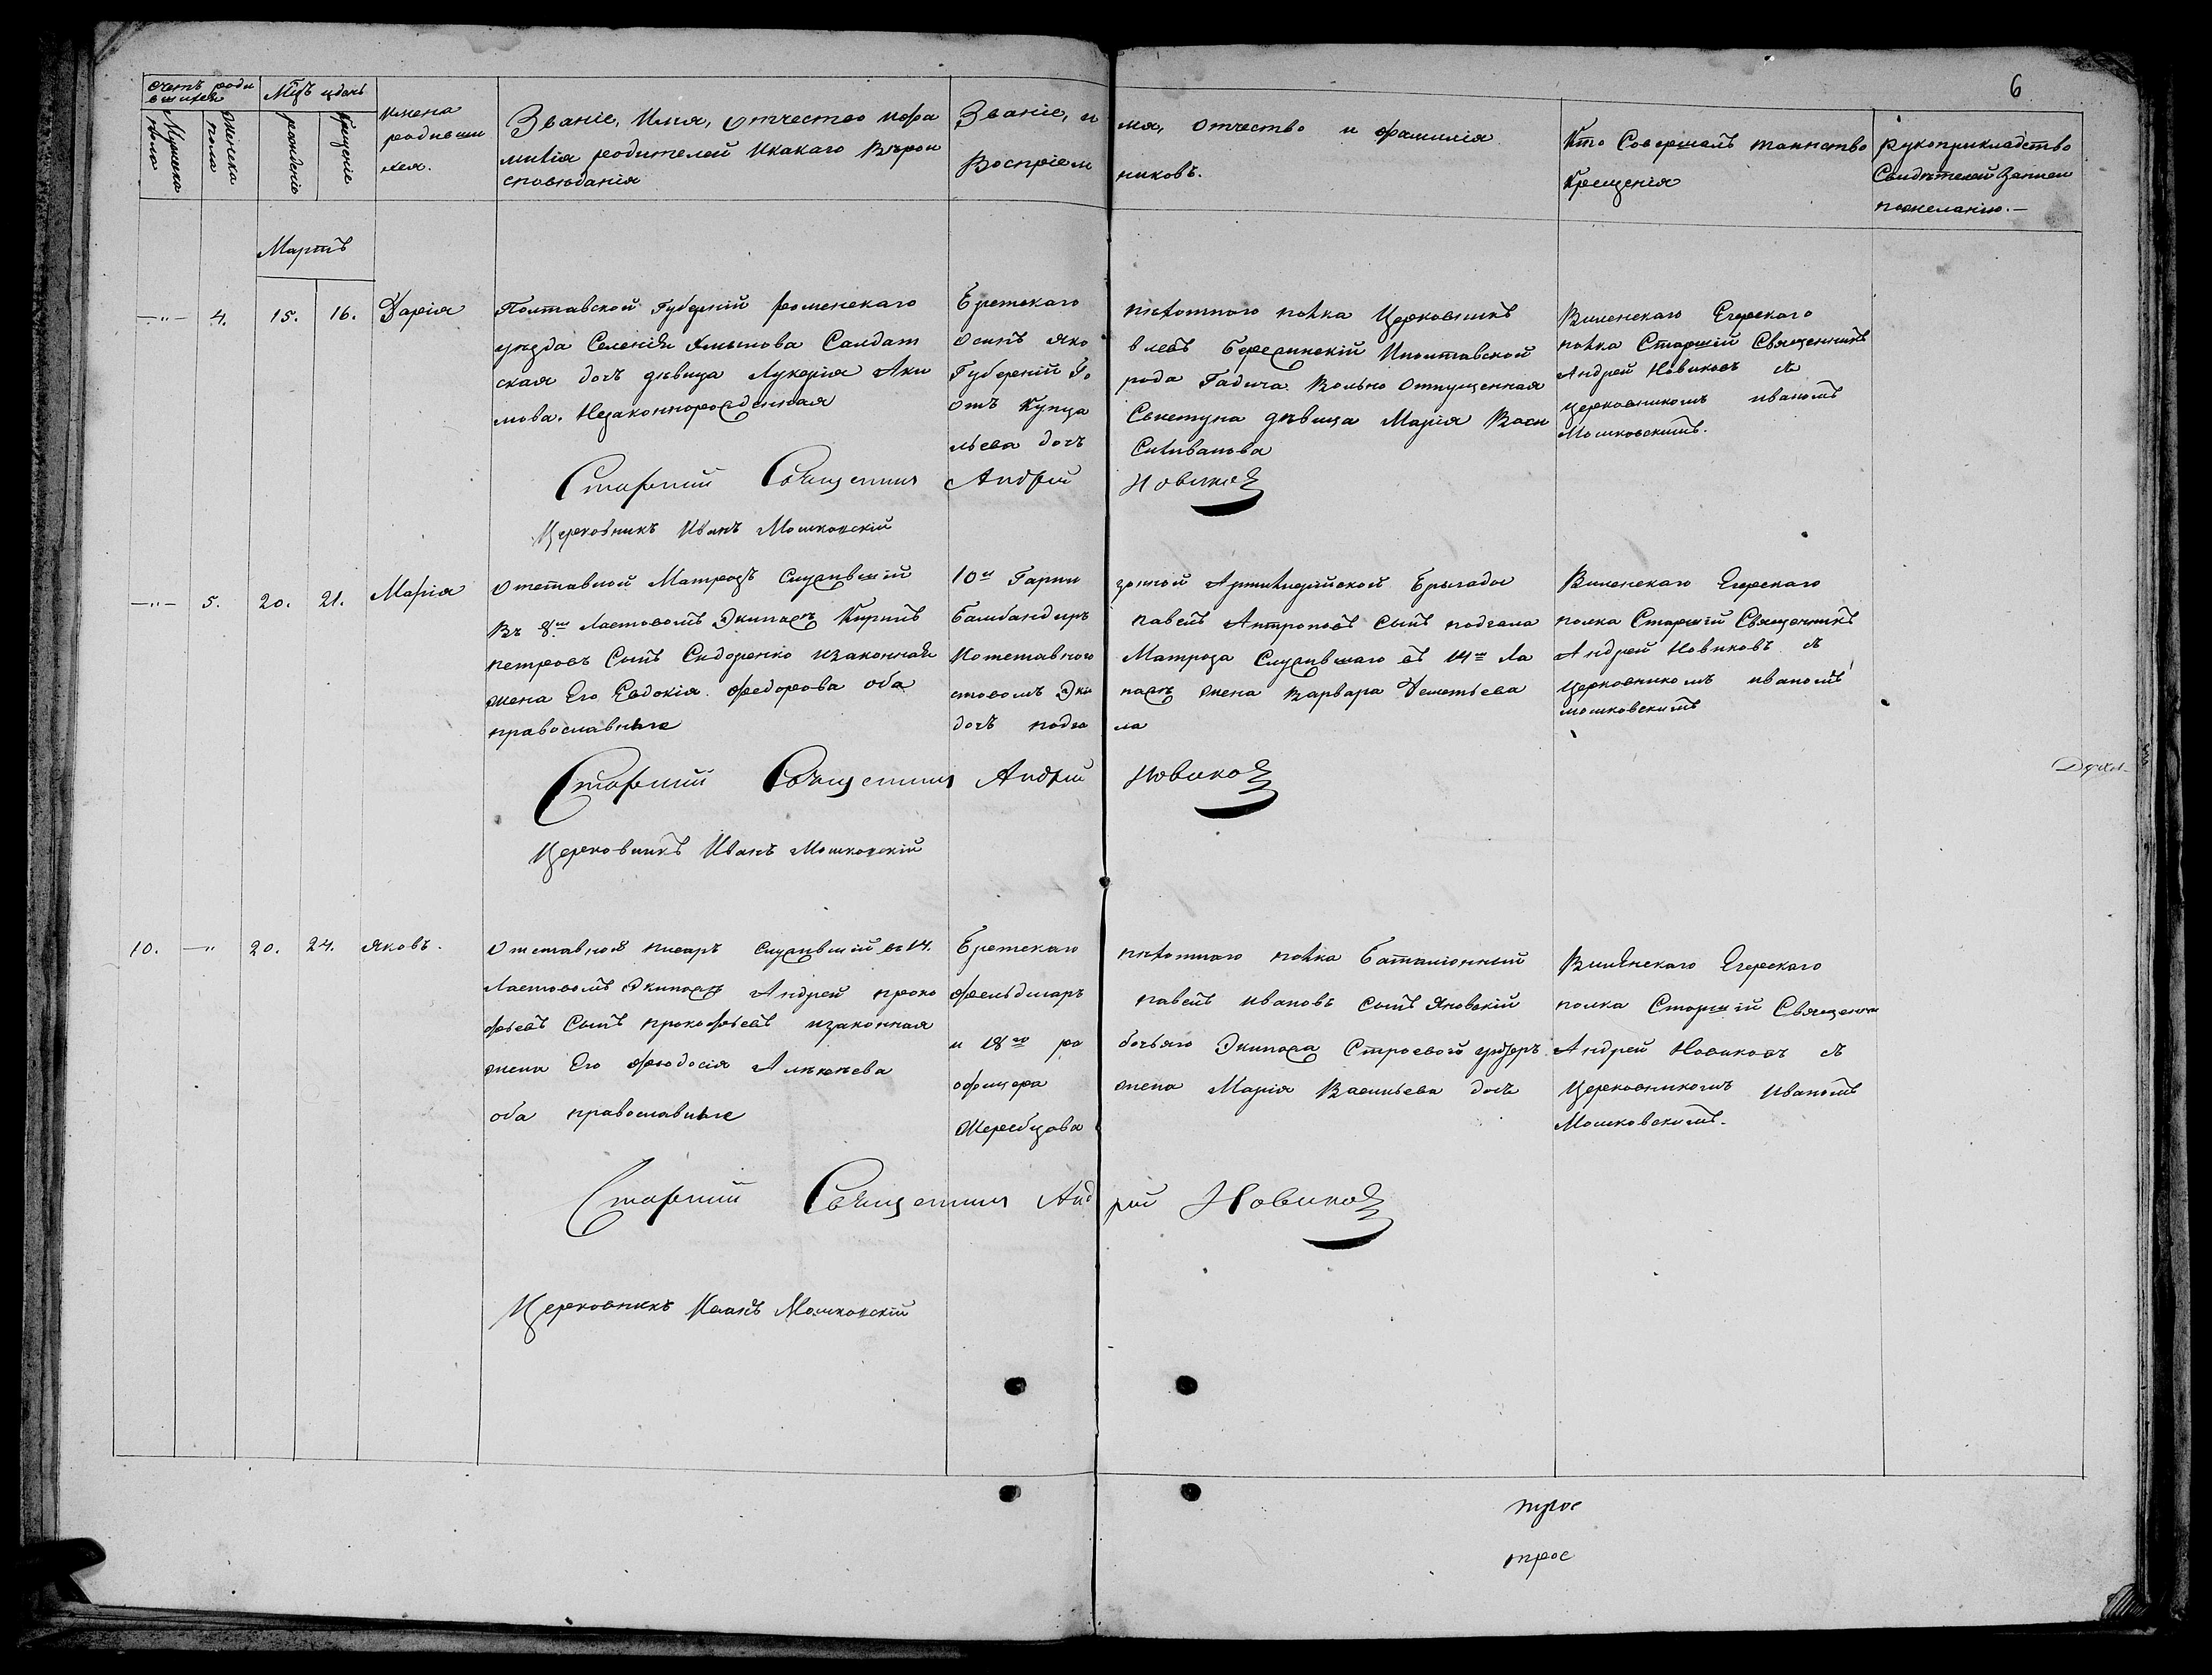 6
Счетъ роди
вшихся
Мужеска пола
Женска пола
Мцъ и день
рожденіе
Крещеніе
Имена
родивши
хся.
Званіе, Имя, Отчество ифа
милія родителей Икакаго Вѣрои
сповѣданія
Званіе, и мя, Отчество и фамилія
Воспріем никовъ.
Кто Совершалъ таинство
Крещенія
Рукоприкладство
Свидѣтелей Записи
пожеланію.—
Мартъ
—"— 4. 15. 16. Дарія
Полтавской Губерніи Роменскаго
уѣзда Селенія Хмылова Салдат
ская дочь дѣвица Лукерія Аки
мова. Незаконнорожденная
Брестскаго пѣхотнаго полка Церковникъ
Осипъ Яко влевъ Березинскій Иполтавской
Губерніи Го рода Гадича Вольно Отпущенная
Отъ Купца Свистуна дѣвица Марія Васи
льева дочь Силиванова
Виленскаго Егерскаго
полка Старшій Священникъ
Андрей Новиковъ съ
церковникомъ иваномъ
Мошковскимъ.
Старший Священник Андрей Новиковъ
Церковникъ Иванъ Мошковскій
—"— 5. 20. 21. Марія
Отставной Матрозъ Служившій
Въ 8мъ Ластовомъ Экипажѣ Кирилъ
петровъ Сынъ Сидоренко изаконная
жена Его Евдокія Федорова оба
православные
10й Гарни зонной Артилерійской Брыгады
Бамбандиръ павелъ Антроповъ Сынъ подгала
Иотставного Матроза Служившаго въ 14мъ Ла
стовомъ Эки пажѣ жена Варвара Дементьева
дочь подга ла
Виленскаго Егерскаго
полка Старшій Священникъ
Андрей Новиковъ съ
Церковникомъ иваномъ
мошковскимъ
Старший Священник Андрей Новиковъ
Церковникъ Иванъ Мошковскій
10. —" 20. 24. Яковъ.
Отставной писарь Служившій въ 14.
Ластовомъ Экипажѣ Андрей проко
фьевъ Сынъ прокофьевъ изаконная
жена Его Феодосія Алексѣева
оба православные
Брестскаго пѣхотнаго полка Баталіонный
Фельдшаръ павелъ ивановъ Сынъ Яновскій
и 18го ра бочьяго Экипажа Строевого ундеръ
офицера жена Марія Васильева дочь
Жеребцова
Виленскаго Егерскаго
полка Старшій Священни
Андрей Новиковъ съ
Церковникомъ Иваномъ
Мошковскимъ.
Старший Священник Андрей Новиковъ
Церковникъ Иванъ Мошковскій